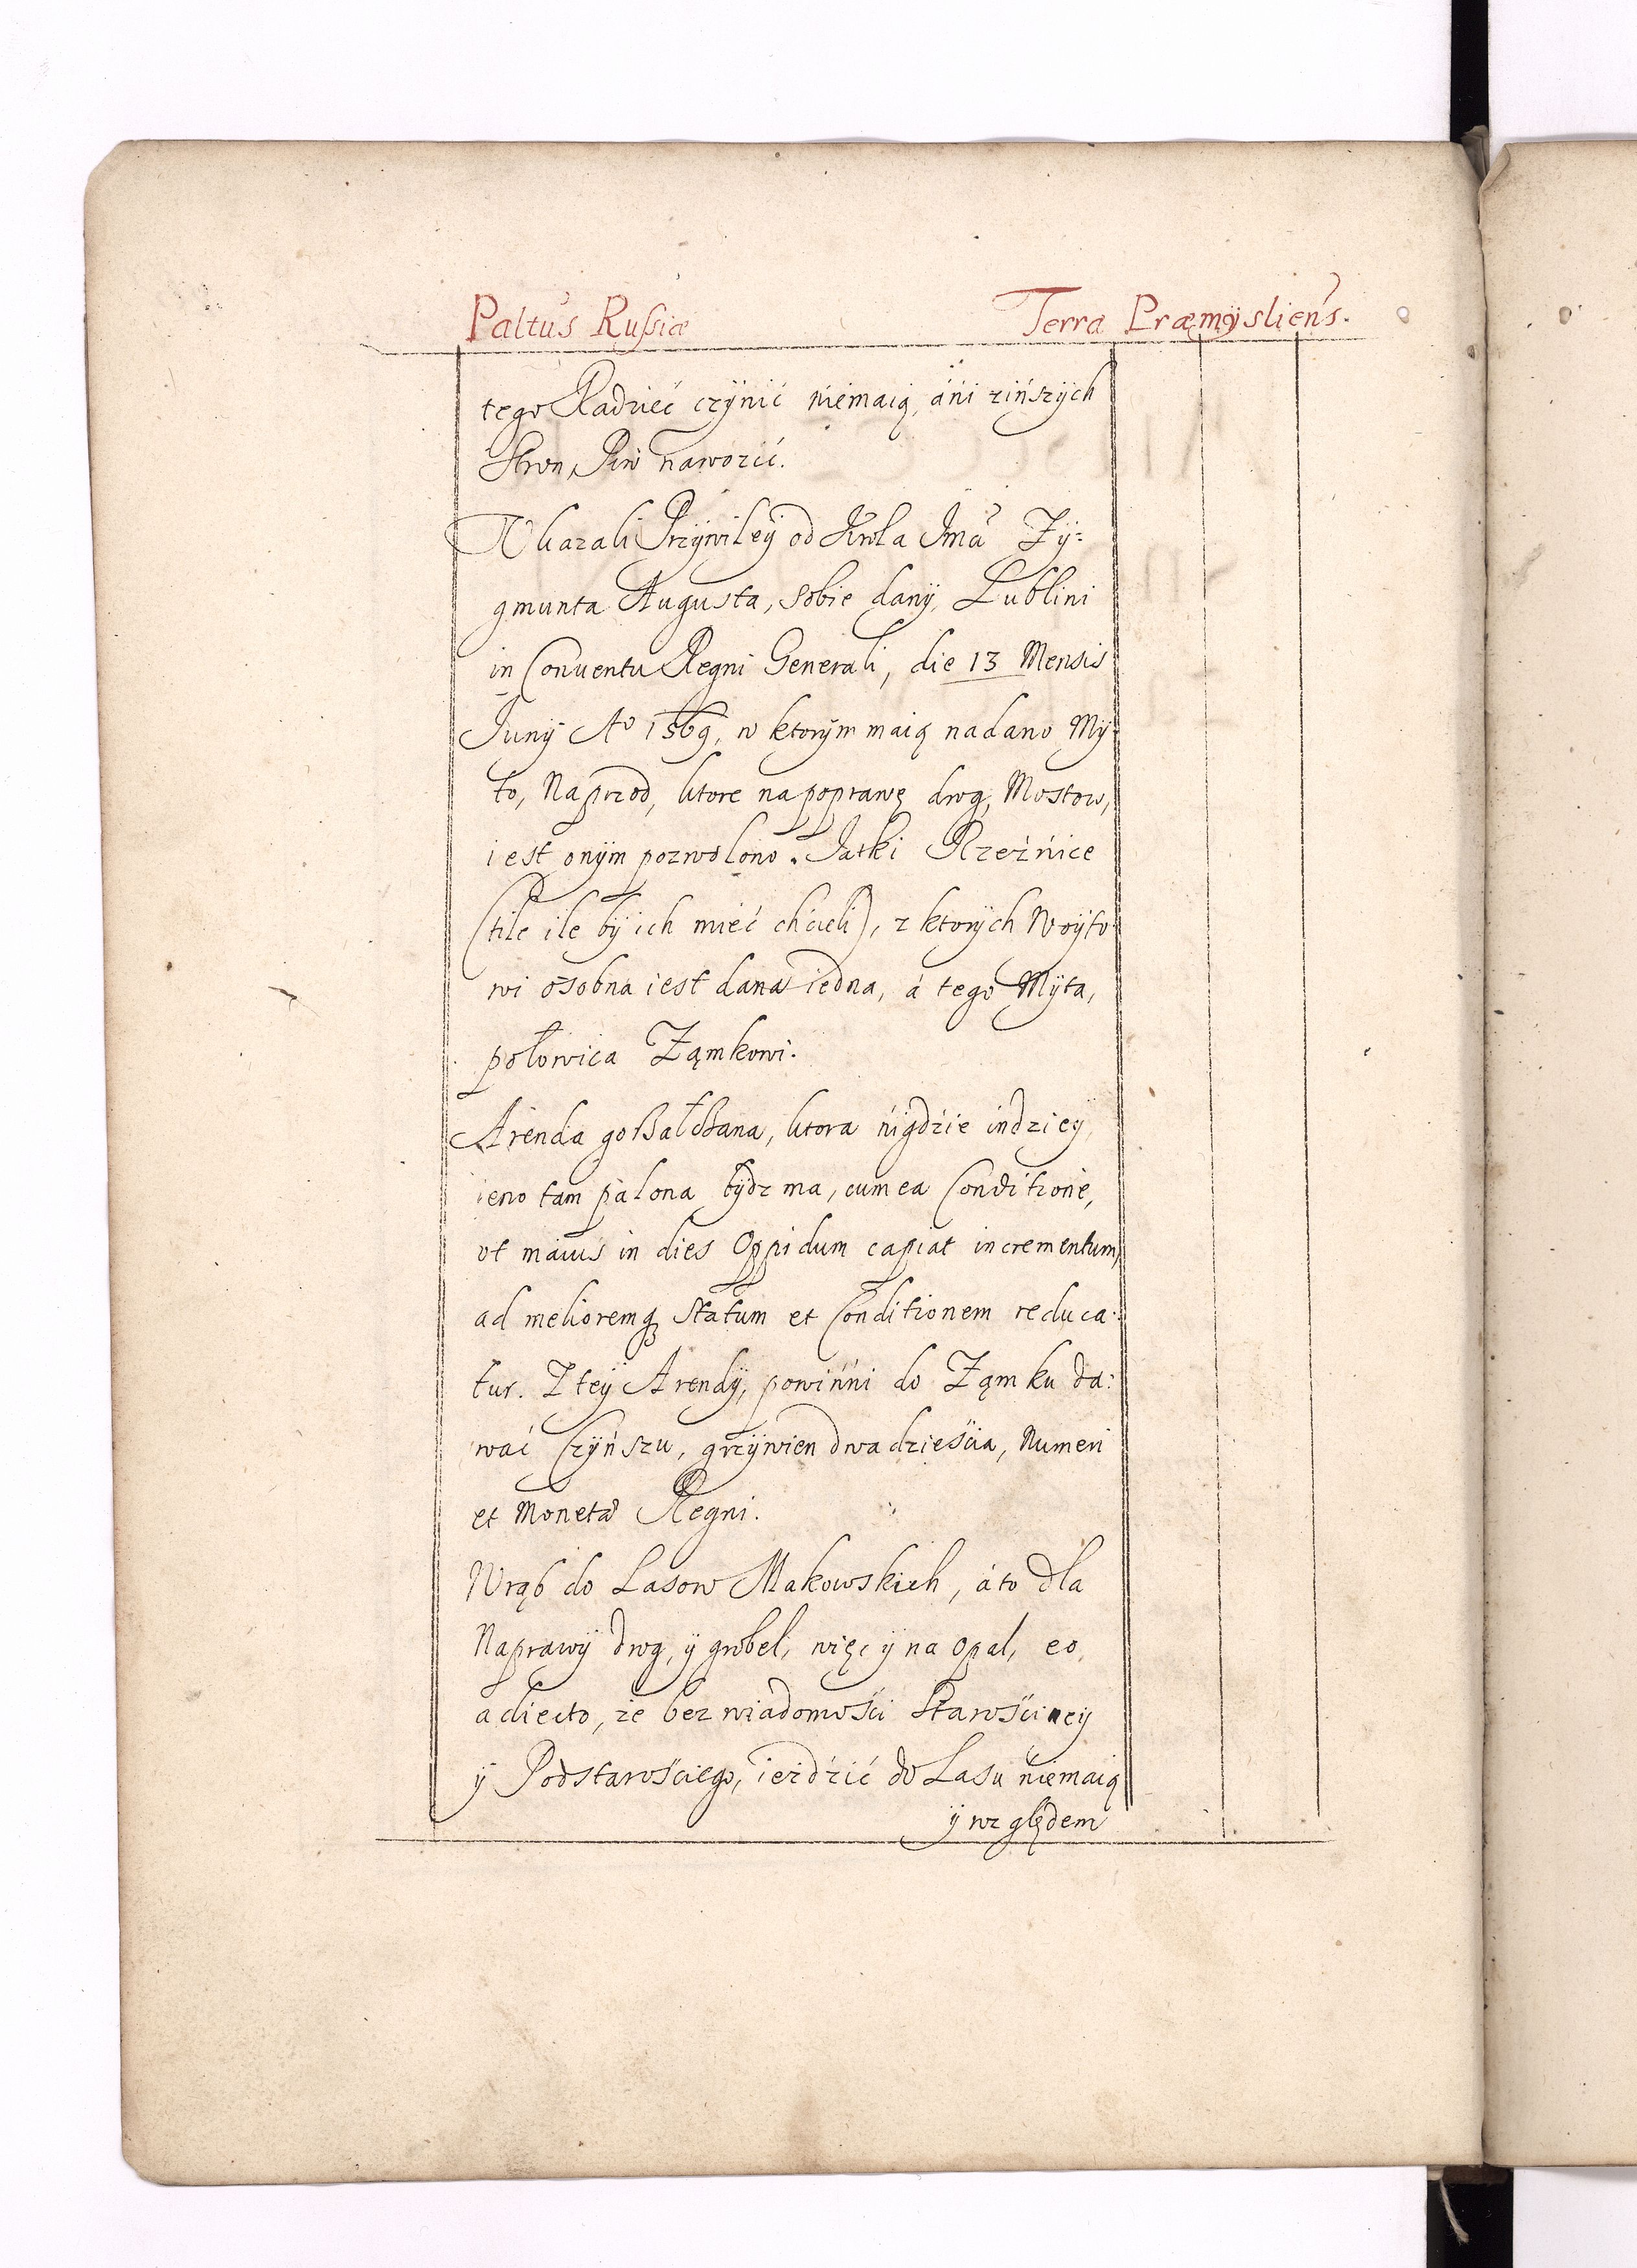 Paltus Rusiæ Terra Præmÿsliens.
tego Radzieć czÿnić niemaią, áni zińszÿch
Stron Piw nawozić.
Ukazali Przÿwileÿ od Krola Jmci Zÿ=
gmunta Augusta, sobie danÿ, Lublini
in Conuentu Regni Generali, die 13 Mensis
Junÿ Aº 1569, w ktorÿm maią nadano Mÿ
to, Naprzod, ktore na poprawę drog, Mostow,
iest onÿm pozwolono. Jatki Rzeźnice
(tile ile bÿ ich mieć chcieli), z ktorÿch Woÿto
wi osobna iest dana iedna, á tego Mÿta,
połowica Ząmkowi.
Arenda gorzałczana, ktora nigdzie indzieÿ,
ieno tam palona bÿdz ma, cum ea Conditione,
vt maius in dies Oppidum capiat incrementum,
ad melioremq statum et Conditionem reduca:
tur. Z teÿ Arendÿ, powinni do Ząmku da:
wać Czÿnszu, grzÿwien dwadzieścia, Numeri
et Moneta Regni.
Wrąb do Lasow Makowskich, áto dla
Naprawÿ drog, ÿ grobel, więc ÿ na opal, eo,
adiecto, że bez wiadomości Starościneÿ
ÿ Podstarościego, ieździć do Lasu niemaią
ÿ względem